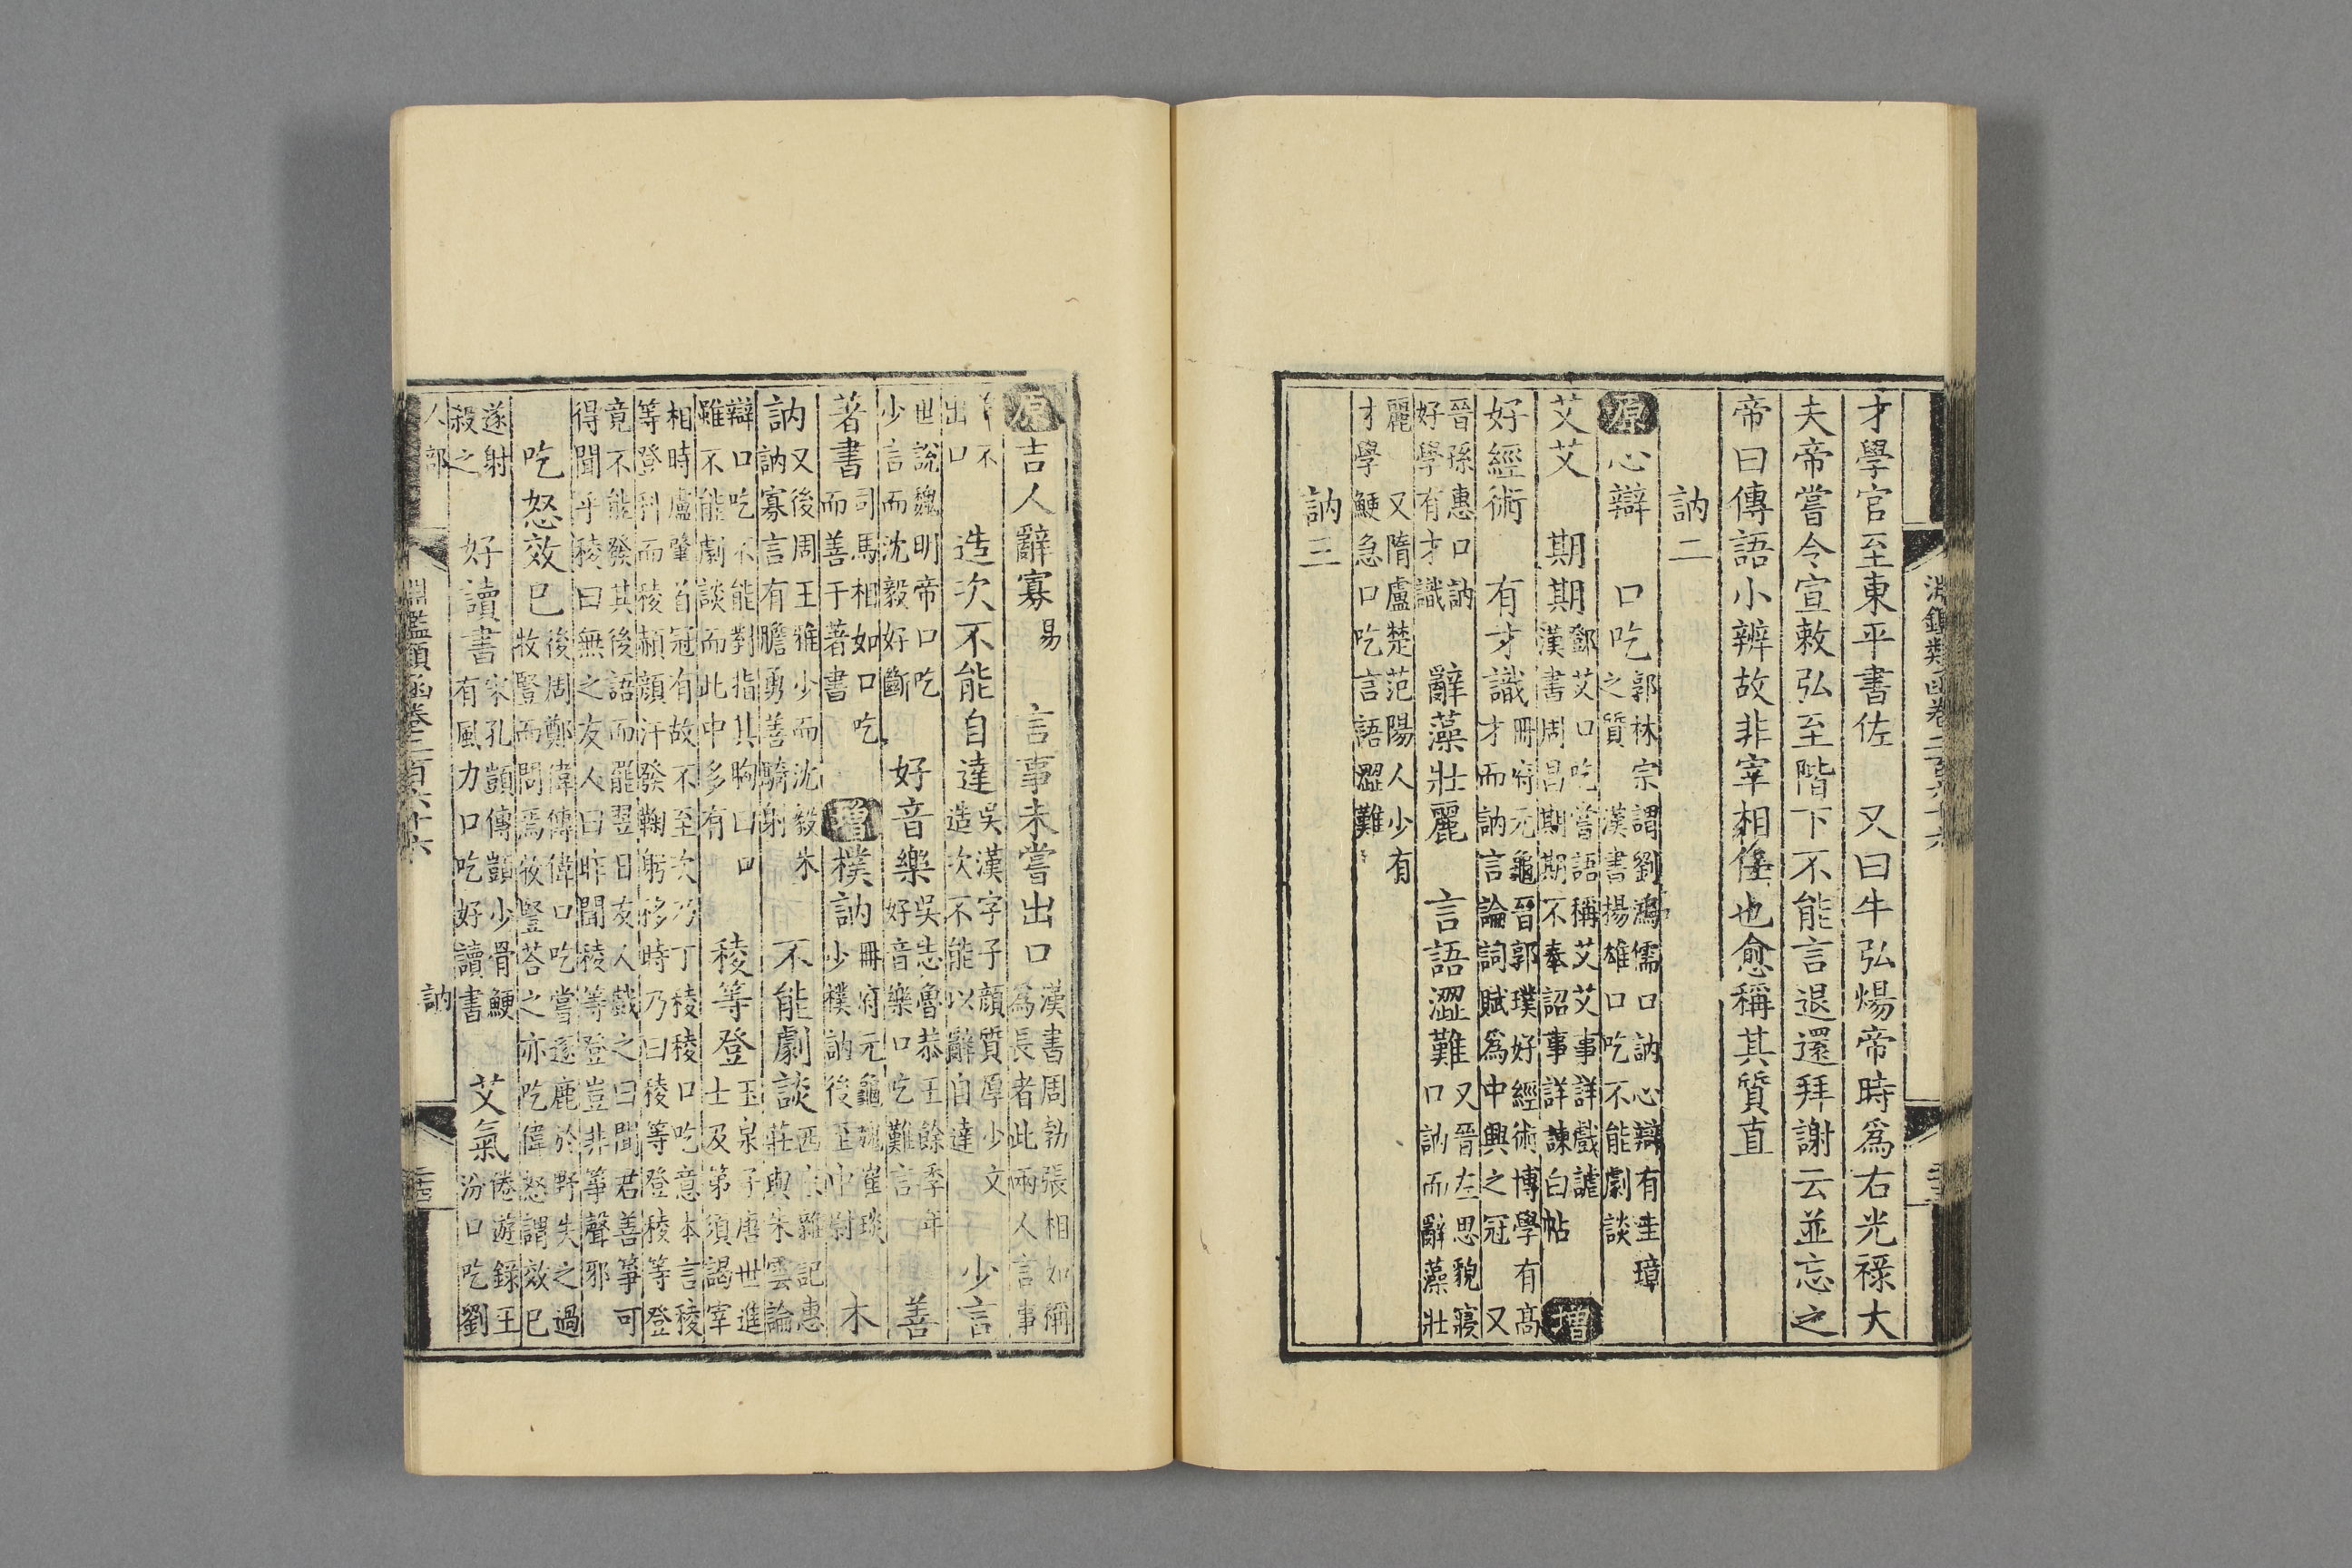 才學官至東平書佐　又曰牛弘煬帝時爲右光祿大
夫帝嘗令宣敕弘至階下不能言退還拜謝云並忘之
帝曰傳語小辨故非宰相任也愈稱其質直
訥二
原心辯　口吃郭林宗謂劉儒口訥心辯有圭璋
之質　漢書揚雄口吃不能劇談
艾艾　期期鄧艾口吃嘗語稱艾艾事詳戲謔
漢書周昌期期不奉詔事詳諫白帖　增
好經術　有才識冊府元龜晉郭璞好經術博學有高
才而訥言論詞賦爲中興之冠　又
晉孫惠口訥
好學有才識　辭藻壯麗　言語澀難又晉左思貌寢
口訥而辭藻壯
麗　又隋盧楚范陽人少有
才學鯁急口吃言語澀難
訥三
淵鑑類函卷二百六十六
原吉人辭寡易　言事未嘗出口漢書周勃張相如稱
爲長者此兩人言事
不
出口　造次不能自達吳漢字子顏質厚少文
造次不能以辭自達　少言
世說魏明帝口吃
少言而沈毅好斷　好音樂吳志魯恭王餘季年
好音樂口吃難言　善
著書司馬相如口吃
而善于著書　增樸訥冊府元龜魏崔琰
少樸訥後　木
訥又後周王雅少而沈毅木
訥寡言有膽勇善騎射　不能劇談西京雜記惠
莊與朱雲論
辯口吃不能對指其胸曰口
雖不能劇談而此中多有　稜等登玉泉子唐世進
士及第須謁宰
相時盧肇首冠有故不至次乃丁稜稜口吃意本言稜
等登科而稜赬顏汗發鞠躬移時乃曰稜等登稜等登
竟不能發其後語而罷翌日友人戲之曰聞君善箏可
得聞乎稜曰無之友人曰昨聞稜等登豈非箏聲邪
吃怒效已後周鄭偉傳偉口吃嘗逐鹿於野失之過
牧豎而問焉牧豎荅之亦吃偉怒謂效已
遂射
殺之　好讀書宋孔顗傳顗少骨鯁
有風力口吃好讀書　艾氣倦遊錄王
汾口吃劉
人部　淵鑑類函卷二百六十六　訥